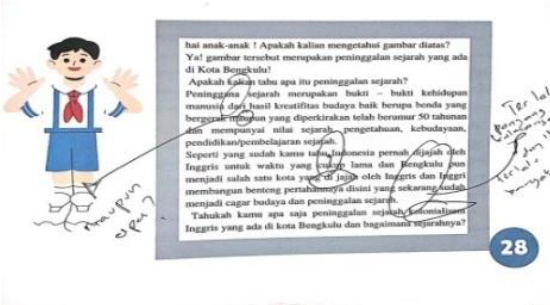 hai anak-anak ! Apakah kalian mengetahui gambar diatas?
Ya! gambar tersebut merupakan peninggalan sejarah yang ada
di Kota Bengkulu!
Apakah kalian tahu apa itu peninggalan sejarah?
Peninggana sejarah merupakan bukti – bukti kehidupan
manusia dari hasil kreatifitas budaya baik berupa benda yang
bergerak yang diperkirakan telah berumur 50 tahunan
dan mempunyai nilai sejarah, pengetahuan, kebudayaan,
pendidikan/pembelajaran sejarah.
Seperti yang sudah kamu tahu Indonesia pernah dijajah oleh
Inggris untuk waktu yang cukup lama dan Bengkulu pun
menjadi salah satu kota yang di jajah oleh Inggris dan Inggri
membangun benteng pertahannaya disini yang sekarang sudah
menjadi cagar budaya dan peninggalan sejarah.
Tahukah kamu apa saja peninggalan sejarah kolonialism
Inggris yang ada di kota Bengkulu dan bagaimana sejarahnya?
maupun
Terlal
28